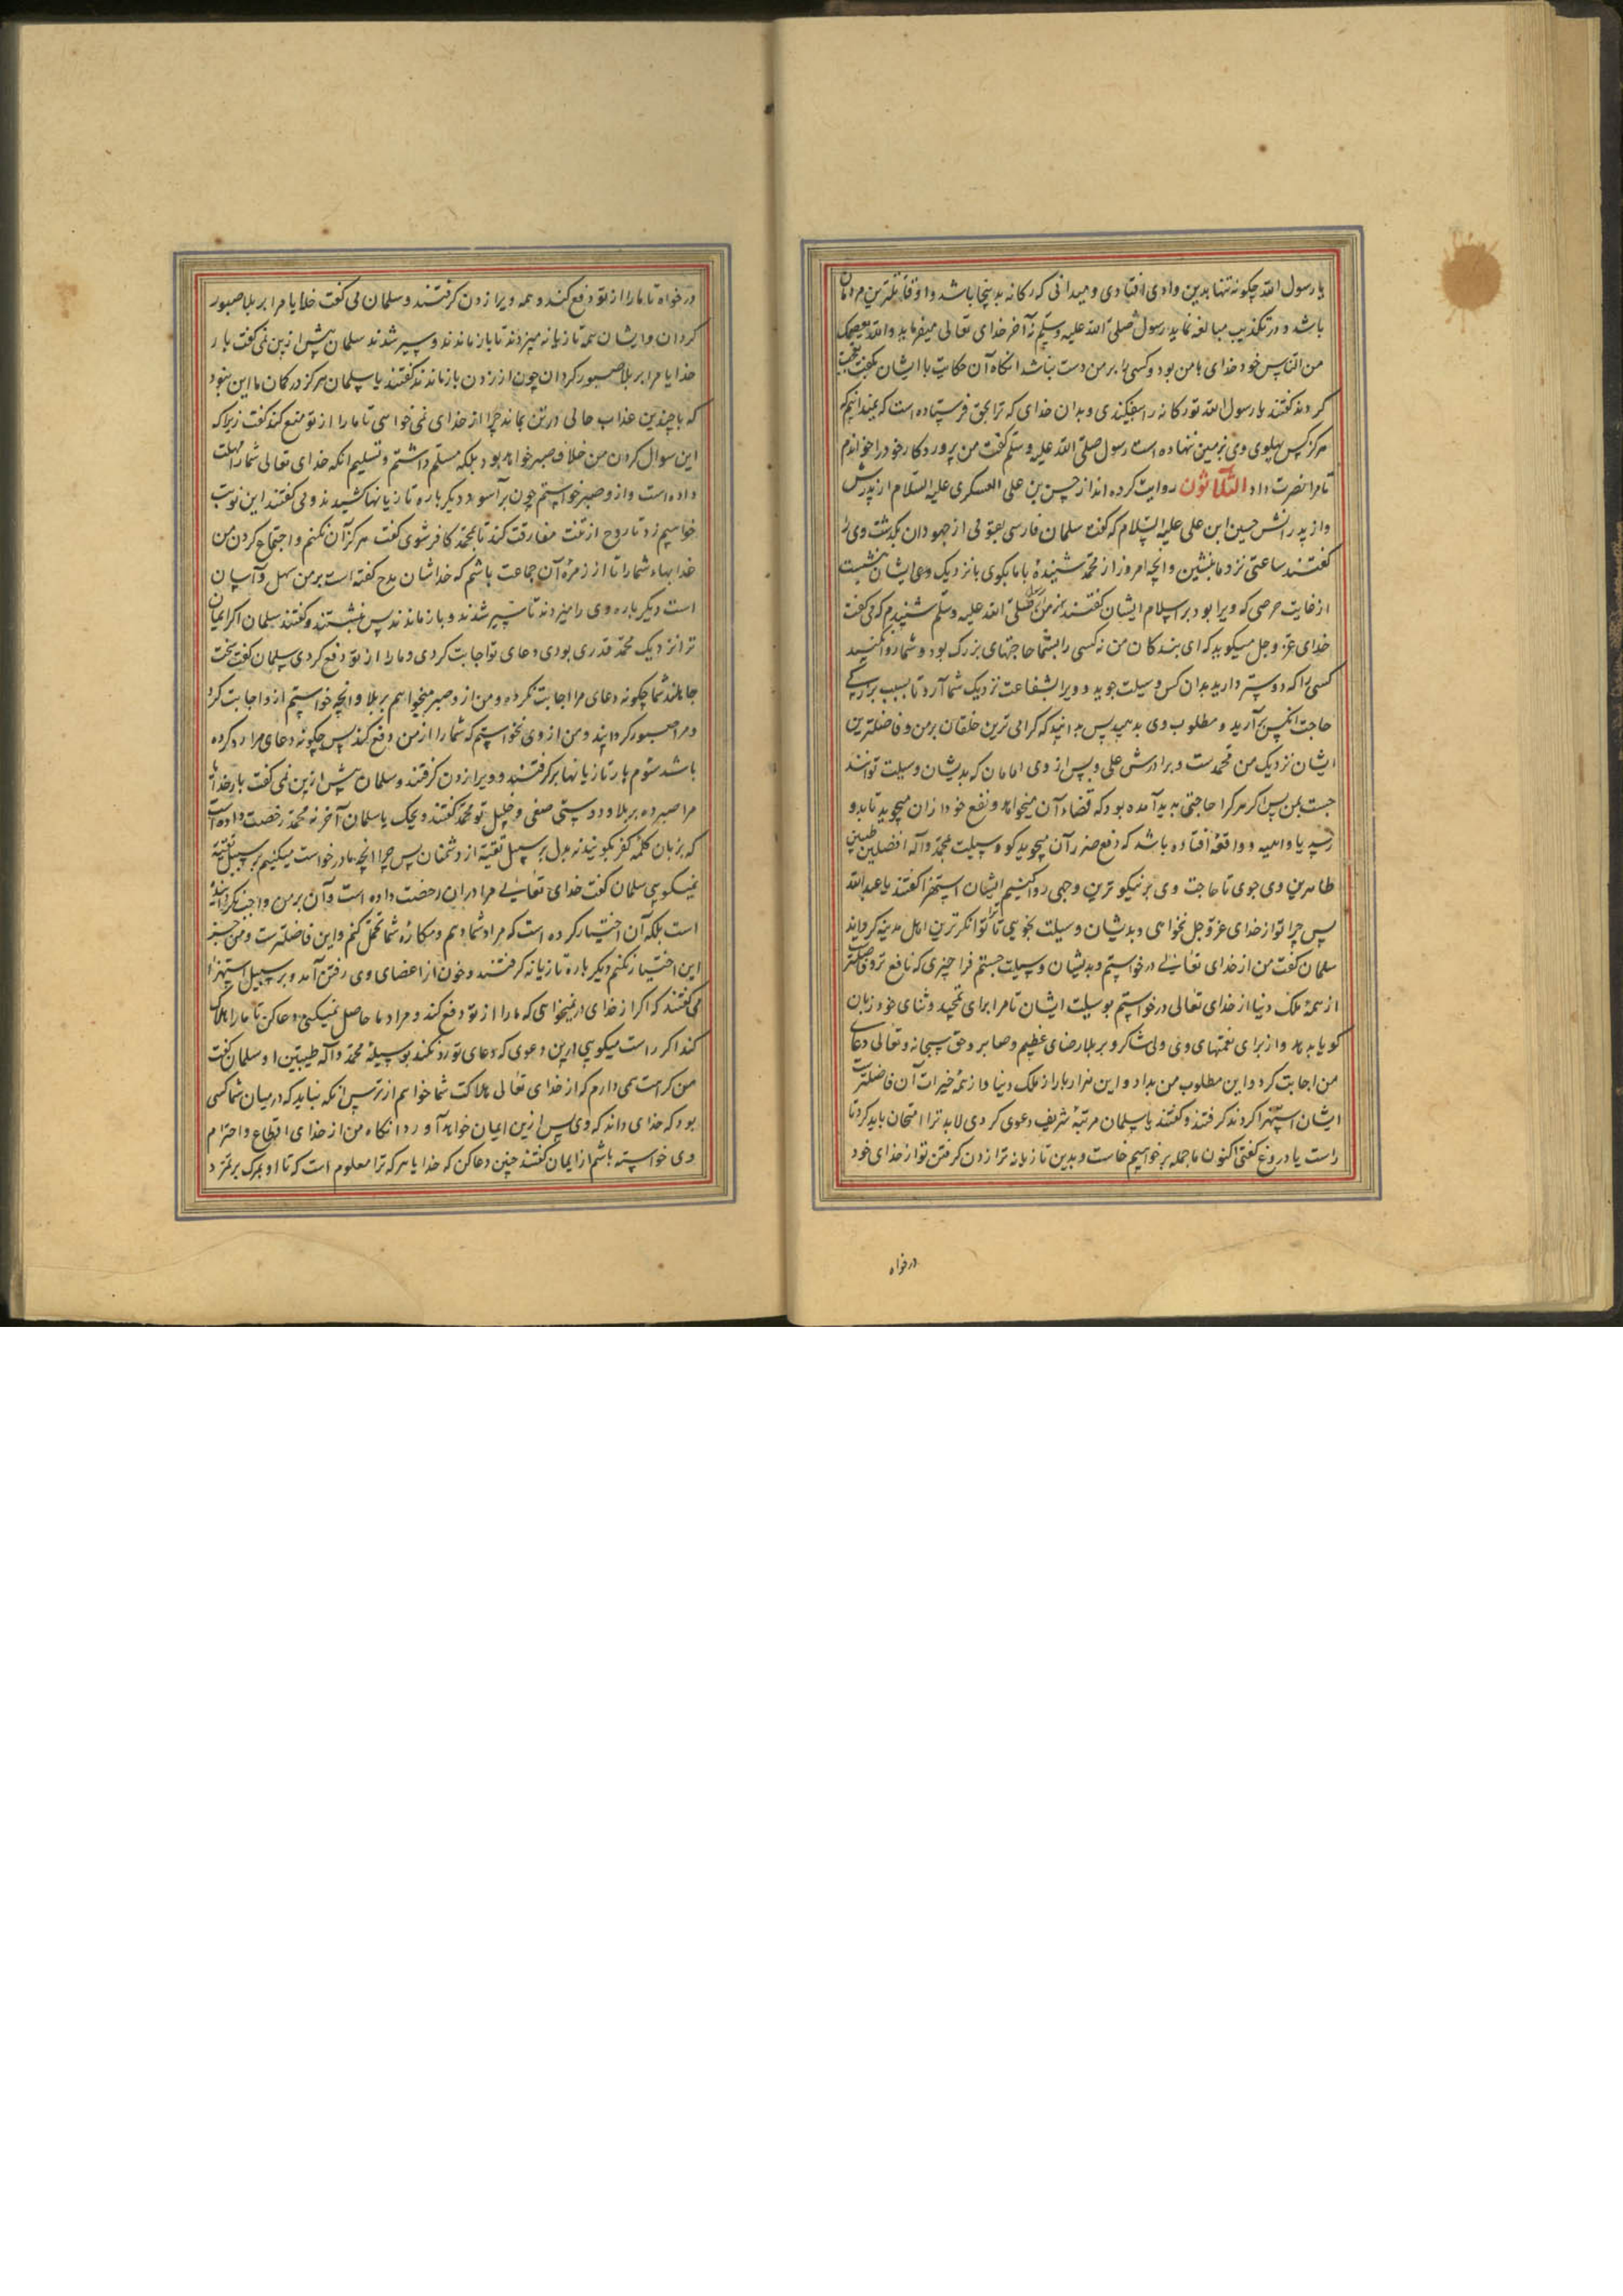 یا رسول الله چکونه تنها بدین وادی افتادی و میدانی که رکانه بدینجا باشد و او قاتلترین مردمان
باشد و در تکذیب مبالغه نماید رسول صلی الله علیه وسلم نه آخر خدای تعالی میفرماید والله یعصمک
من الناس خود خدای با من بود و کسی را بر من دست نباشد انکاه آن حکایت با ایشان بکفت تعجب
کردند کفتند یا رسول الله تو رکانه را بیفکندی و بدان خدای که ترا بحق فرستاده است که نمیدانیم که
هرکز کس پهلوی وی بر زمین نهاده است رسول صلی الله علیه وسلم کفت من پروردکار خود را خواندم
تا مرا نصرت داد الثلاثون روایت کرده اند از حسن بن علی العسکری علیه السلام از پدرش
و از پدرانش حسین ابن علی علیه السلام که کفت سلمان فارسی بقومی از جهودان بکذشت وی را
کفتند ساعتی نزد ما بنشین و انچه امروز از محمد شنیدهٔ با ما بکوی با نزدیک ایشان بنشست
از غایت حرصی که ویرا بود بر اسلام ایشان کفتند صلی الله علیه وسلم شنیدم که می کفت
خدای عز و جل میکوید که ای بندکان من نه کسی را بشما حاجتهای بزرک بود و شما روا نکنید
کسی را که دوستر دارید بدان کس وسیلت جوید و ویرا بشفاعت نزدیک شما آرد تا بسبب
حاجت انکس برآرید و مطلوب وی بدهید پس بدانید که کرامی ترین خلقان بر من و فاضلترین
ایشان نزدیک من محمدست و برادرش علی و پس از وی امامان که بدیشان وسیلت توانند
جست بمن پس اکر هرکرا حاجتی پدید آمده بود که قضاء آن میخواهد و نفع خود از آن میجوید تا بدو
رسد یا داهیه و واقعهٔ افتاده باشد که دفع ضرر آن میجوید کو وسیلت محمد وآله افضلین طیبین
طاهرین وی جوی تا حاجت وی بر نیکوترین وجهی روا کنیم ایشان استهزا کفتند یا عبدالله
پس چرا تو از خدای عز و جل نخواهی و بدیشان وسیلت نجویی تا ترا توانکرترین اهل مدینه کرداند
سلمان کفت من از خدای تعالی درخواستم و بدیشان وسیلت جستم فرا چیزی که نافع تر و فاضلتر
از همهٔ ملک دنیا از خدای تعالی درخواستم بوسیلت ایشان تا مرا برای تمجید و ثنای خود زبان
کویا بدهد و از برای نعمتهای وی دلی شاکر و بر بلا رضای عظیم و صابر و حق سبحانه و تعالی دعای
من اجابت کرد و این مطلوب من بداد و این هزار بار از ملک دنیا و از همهٔ خیرات آن فاضلترست
ایشان استهزا کردند کرفتند و کفتند یا سلمان مرتبهٔ شریف دعوی کردی لابد ترا امتحان باید کرد تا
راست یا دروغ کفتی اکنون ما جمله برخواهیم خاست و بدین تازیانه ترا زدن کرفتن تو از خدای خود
درخواه
درخواه تا ما را از تو دفع کند و همه ویرا زدن کرفتند و سلمان می کفت خدایا مرا بر بلا صبور
کردان و ایشان همه تازیانه میزدند تا باز ماندند و سیر شدند سلمان بیش ازین نمی کفت بار
خدایا مرا بر بلا صبور کردان چون از زدن باز ماندند کفتند یا سلمان هرکز در کمان ما این نبود
که با چندین عذاب جانی در تن بماند چرا از خدای نمی خواهی تا ما را از تو منع کند کفت زیرا که
این سوال کردن من خلاف صبر خواهد بود بلکه مسلم داشتم و تسلیم انکه خدای تعالی شما را مهلت
داده است و از و صبر خواستم چون برآسودند دیکر باره تازیانها کشیدند و می کفتند این نوبت
خواهیم زد تا روح از تنت مفارقت کند تا بمحمد کافر شوی کفت هرکز آن نکنم و اجتماع کردن من
عذابهاء شما را تا از زمرهٔ آن جماعت باشم که خداشان مدح کفته است بر من سهل و آسان
است دیکر باره وی را میزدند تا سیر شدند و باز ماندند پس بنشستند و کفتند سلمان اکر ایمان
ترا نزدیک محمد قدری بودی دعای تو اجابت کردی و ما را از تو دفع کردی سلمان کفت سخت
جاهلند شما چکونه دعای مرا اجابت نکرده و من از و صبر میخواهم بر بلا و انچه خواستم ازو اجابت کرد
و مرا صبور کردانید و من از وی نخواستم که شما را از من دفع کند پس چکونه دعای مرا رد کرده
باشد سئوم بار تازیانها برکرفتند و ویرا زدن کرفتند و سلمان بیش ازین نمی کفت بار خدایا
مرا صبر ده بر بلا و دوستی صفی و خلیل تو محمد کفتند ویحک یا سلمان آخر نه محمد رخصت داده است
که بزبان کلمهٔ کفر بکویند نه بدل بر سبیل تقیه از دشمنان پس چرا انچه ما درخواست میکنیم بر سبیل تقیه
نمیکویی سلمان کفت خدای تعالی مرا در آن رخصت داده است و آن بر من واجب نکردانیده
است بلکه آن اختیار کرده است که مراد شما ندهم و مکارهٔ شما تحمل کنم و این فاضلترست و من جز
این اختیار نکنم دیکر باره تازیانه کرفتند و خون از اعضای وی رفتن آمد و بر سبیل استهزا
می کفتند که اکر از خدای درنیخواهی که ما را از تو دفع کند و مراد ما حاصل نمیکنی دعا کن تا ما را هلاک
کند اکر راست میکویی ازین دعوی که دعای تو رد نکند بوسیلهٔ محمد وآله طیبین او سلمان کفت
من کراهت می دارم که از خدای تعالی هلاکت شما خواهم از ترس انکه نباید که در میان شما کسی
بود که خدای داند که وی پس ازین ایمان خواهد آورد انکاه من از خدای اقتطاع و احترام
وی خواسته باشم از ایمان کفتند چنین دعا کن که خدایا هر که ترا معلوم است که تا او بمرک بر تمرد